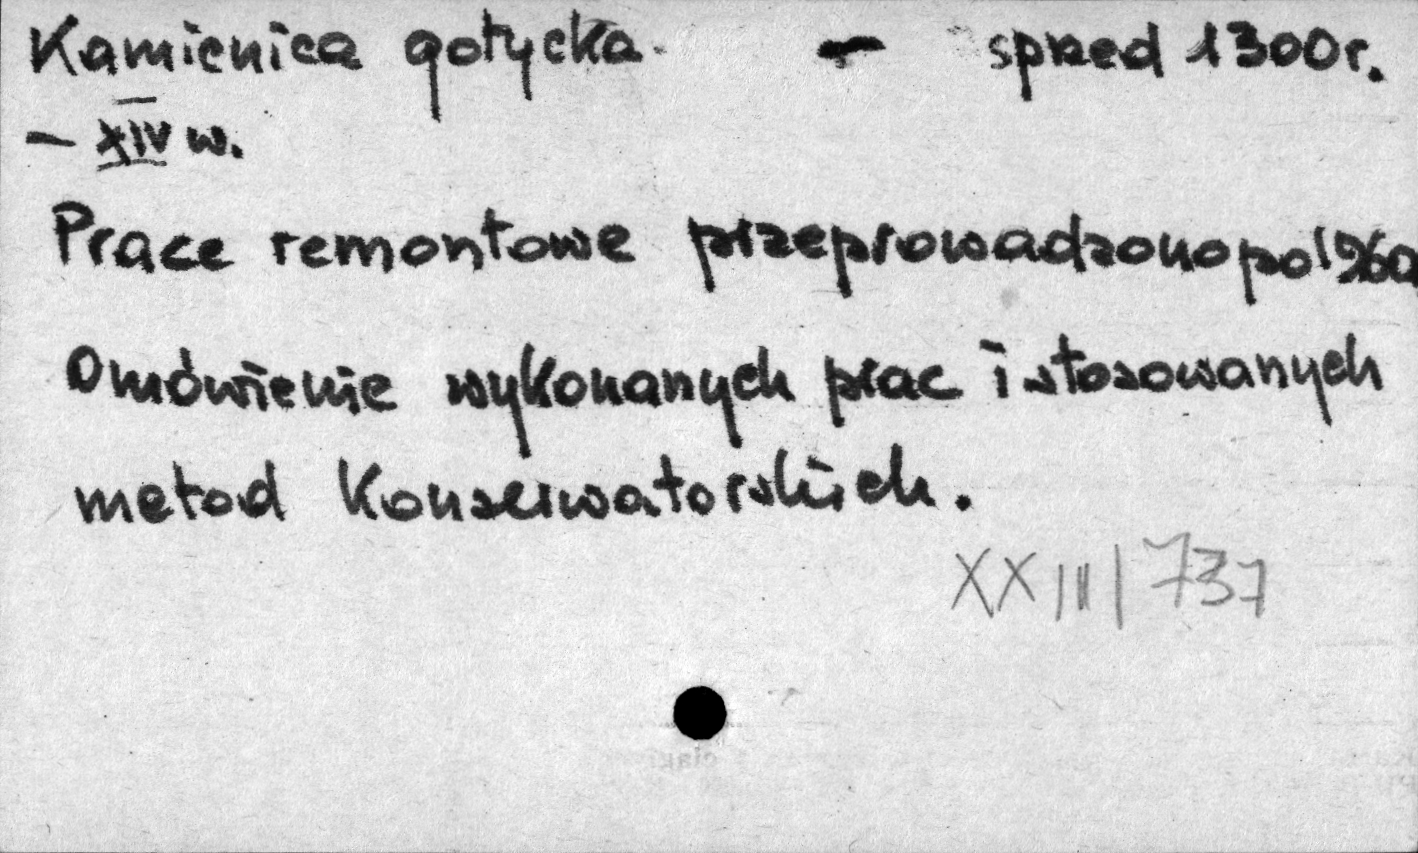 Kamienica gotycka - sprzed 1300r.
- XIV w.
Prace remontowe przeprowadzono po 1960
Omówienie wykonanych prac i stosowanych
metod konserwatorskich.
XXIII/737